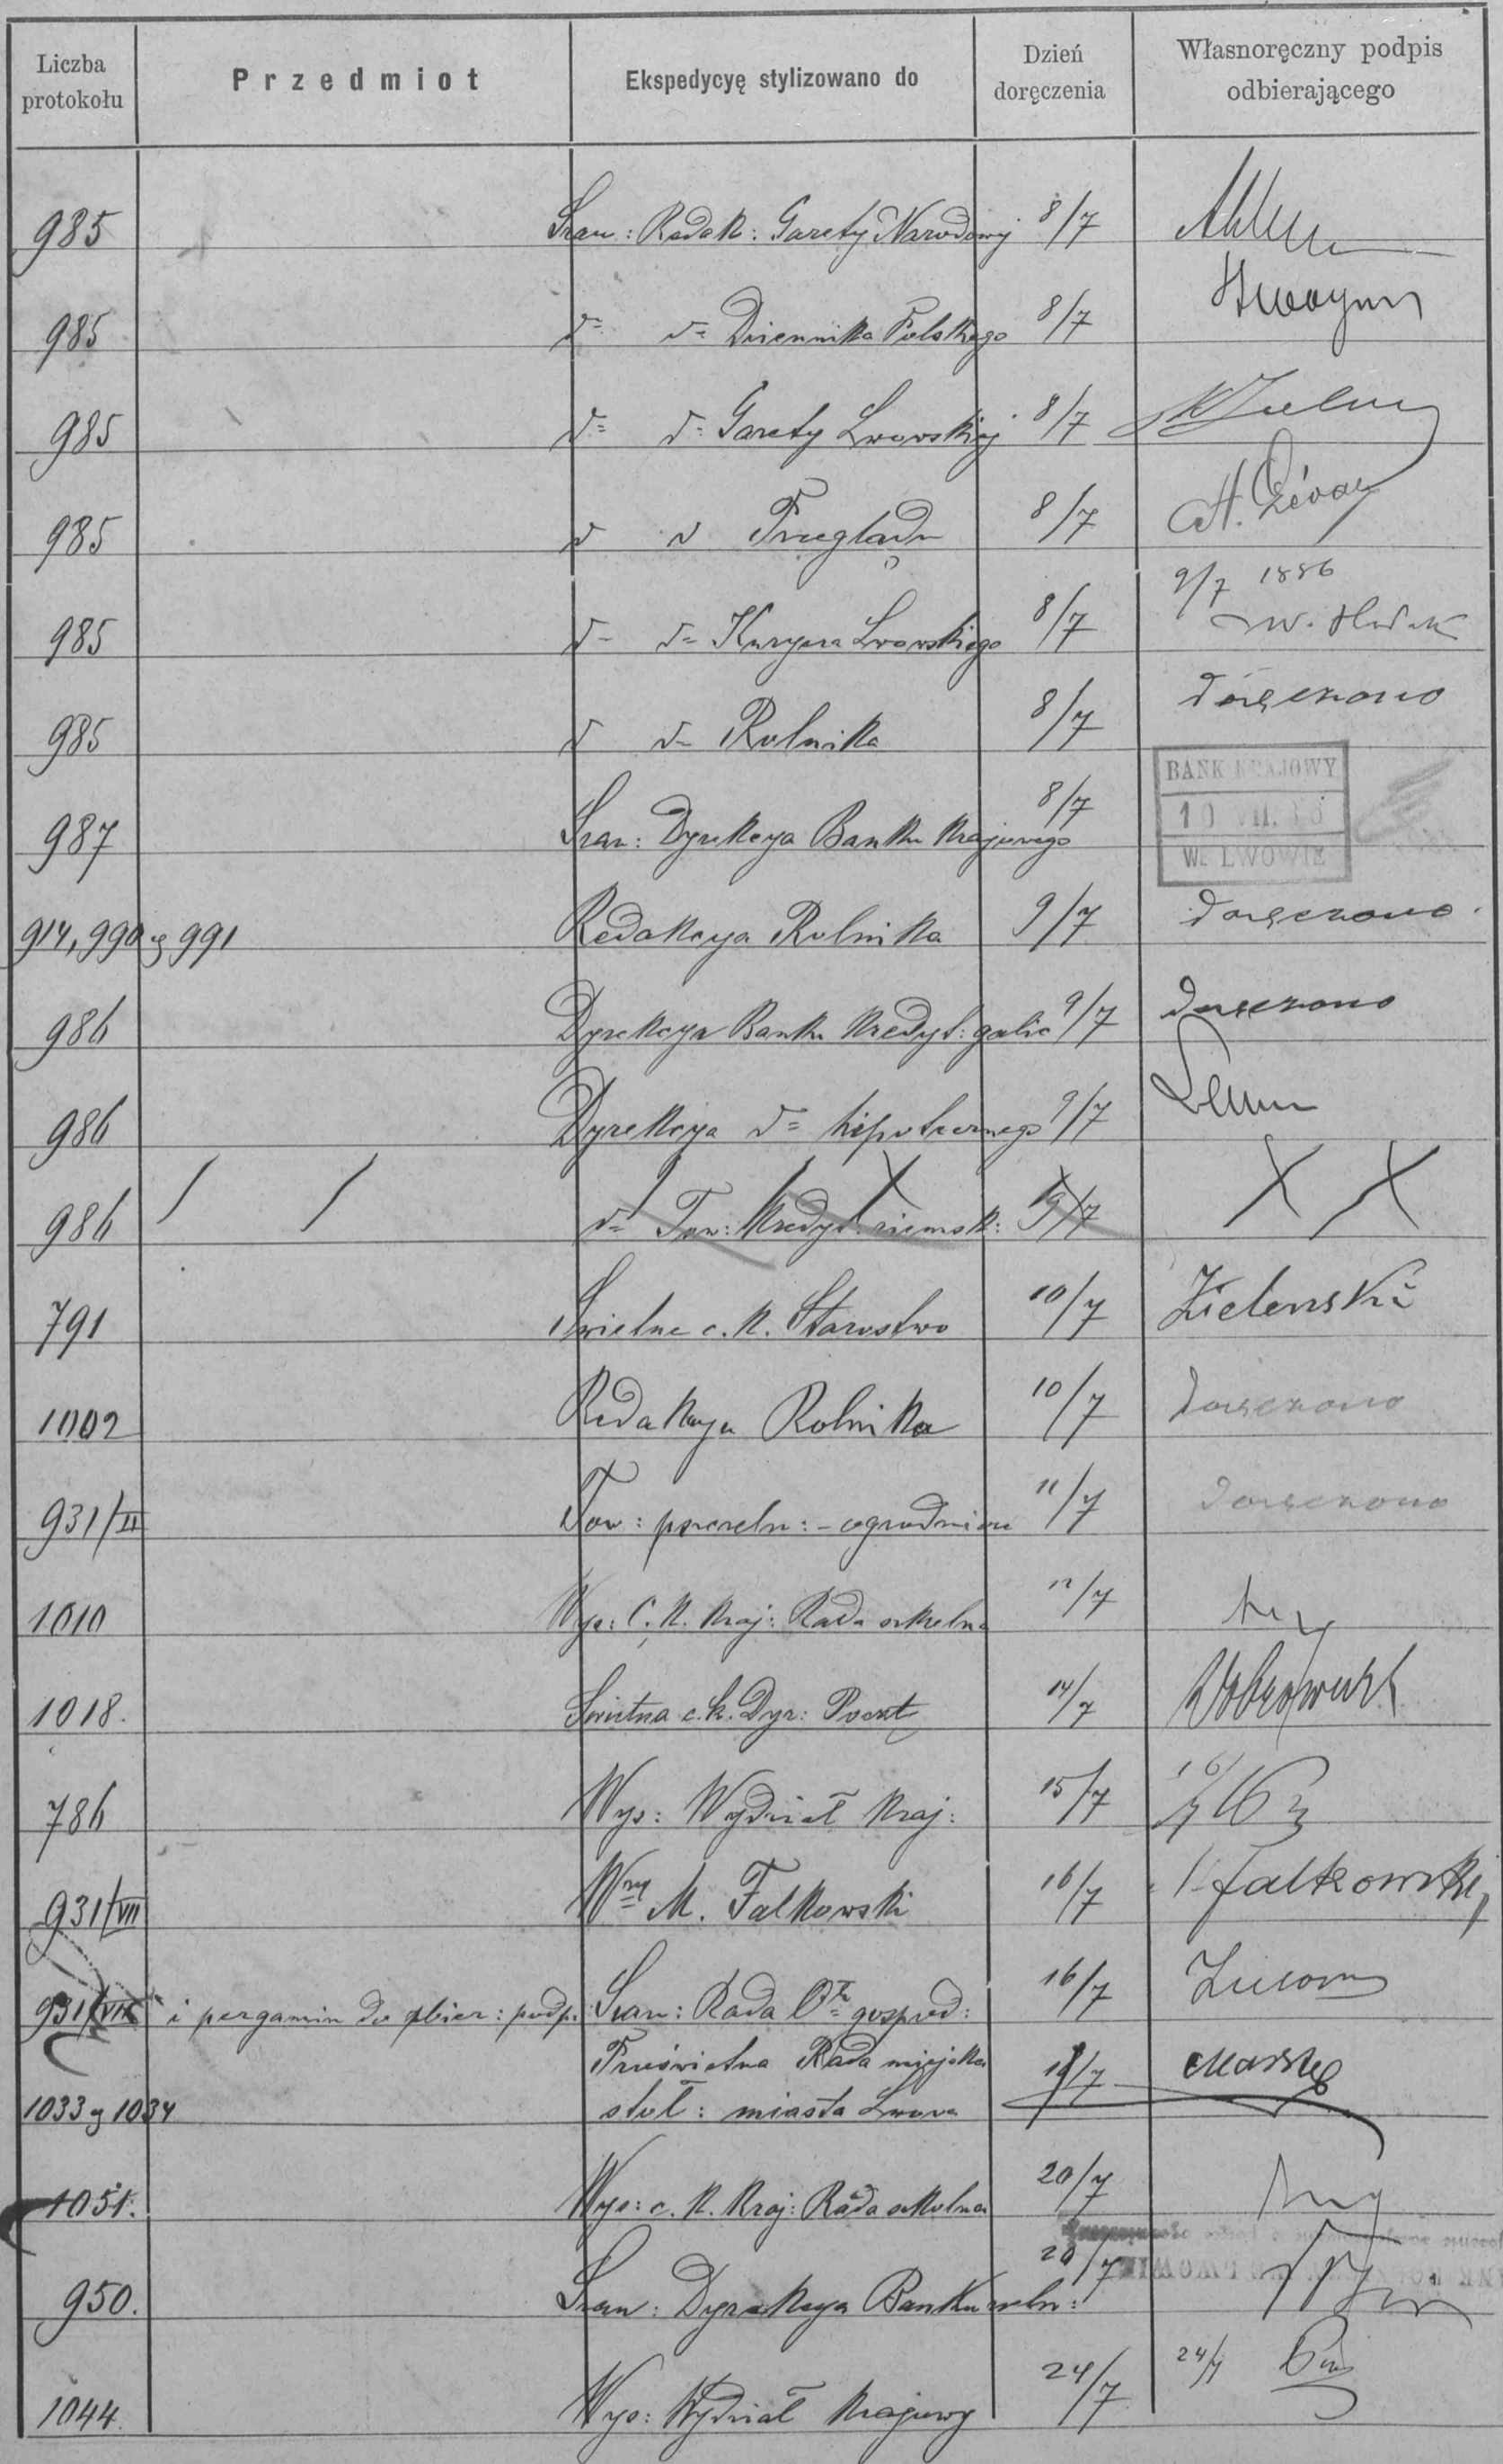 Liczba protokołu Przedmiot Ekspedycyę stylizowano do Dzień doręczenia Własnoręczny podpis odbierającego
985 Szan: Redak: Gazety Narodowej 8/7
985 d= d= Dziennika Polskiego 8/7
985 d= d= Gazety Lwowskiej 8/7
985 d d Przeglądu 8/7
9/7 1886
985 d= d= Kuryera Lwowskiego 8/7
985 d d= Rolnika 8/7 doręczono
987 Szan: Dyrekcya Banku krajowego 8/7 BANK KRAJOWY
10 VII. 86
WE LWOWIE
914, 990 y 991 Redakcya Rolnika 9/7 doręczono
986 Dyrekcya Banku kredyt: galic 9/7 doręczono
986 Dyrekcya d= hipotecznego 9/7
986 d= Tow: kredyt: ziemsk: 9/7
791 Świetne c. k. Starostwo 10/7 Zielenski
1002 Redakcya Rolnika 10/7 doręczono
931/II Tow: pszczeln: - ogrodnicze 11/7 doręczono
1010 Wys: C. k. kraj: Rada szkolna 12/7
1018. Świetna c. k. Dyr: Poczt 14/7
786 Wys: Wydział kraj: 15/7 16/7
931/VII Wny M. Falkowski 16/7 Falkowski
931/VIII i pergamin do zbier: podp: Szan: Rada Oz= gospod: 16/7
Prześwietna Rada miejska
1033 y 1034 stoł: miasta Lwowa 19/7
1051. Wys: c. k. kraj: Rada szkolna 20/7
950. Szan: Dyrekcya Banku roln: 20/7
1044. Wys: Wydział krajowy 24/7 24/7